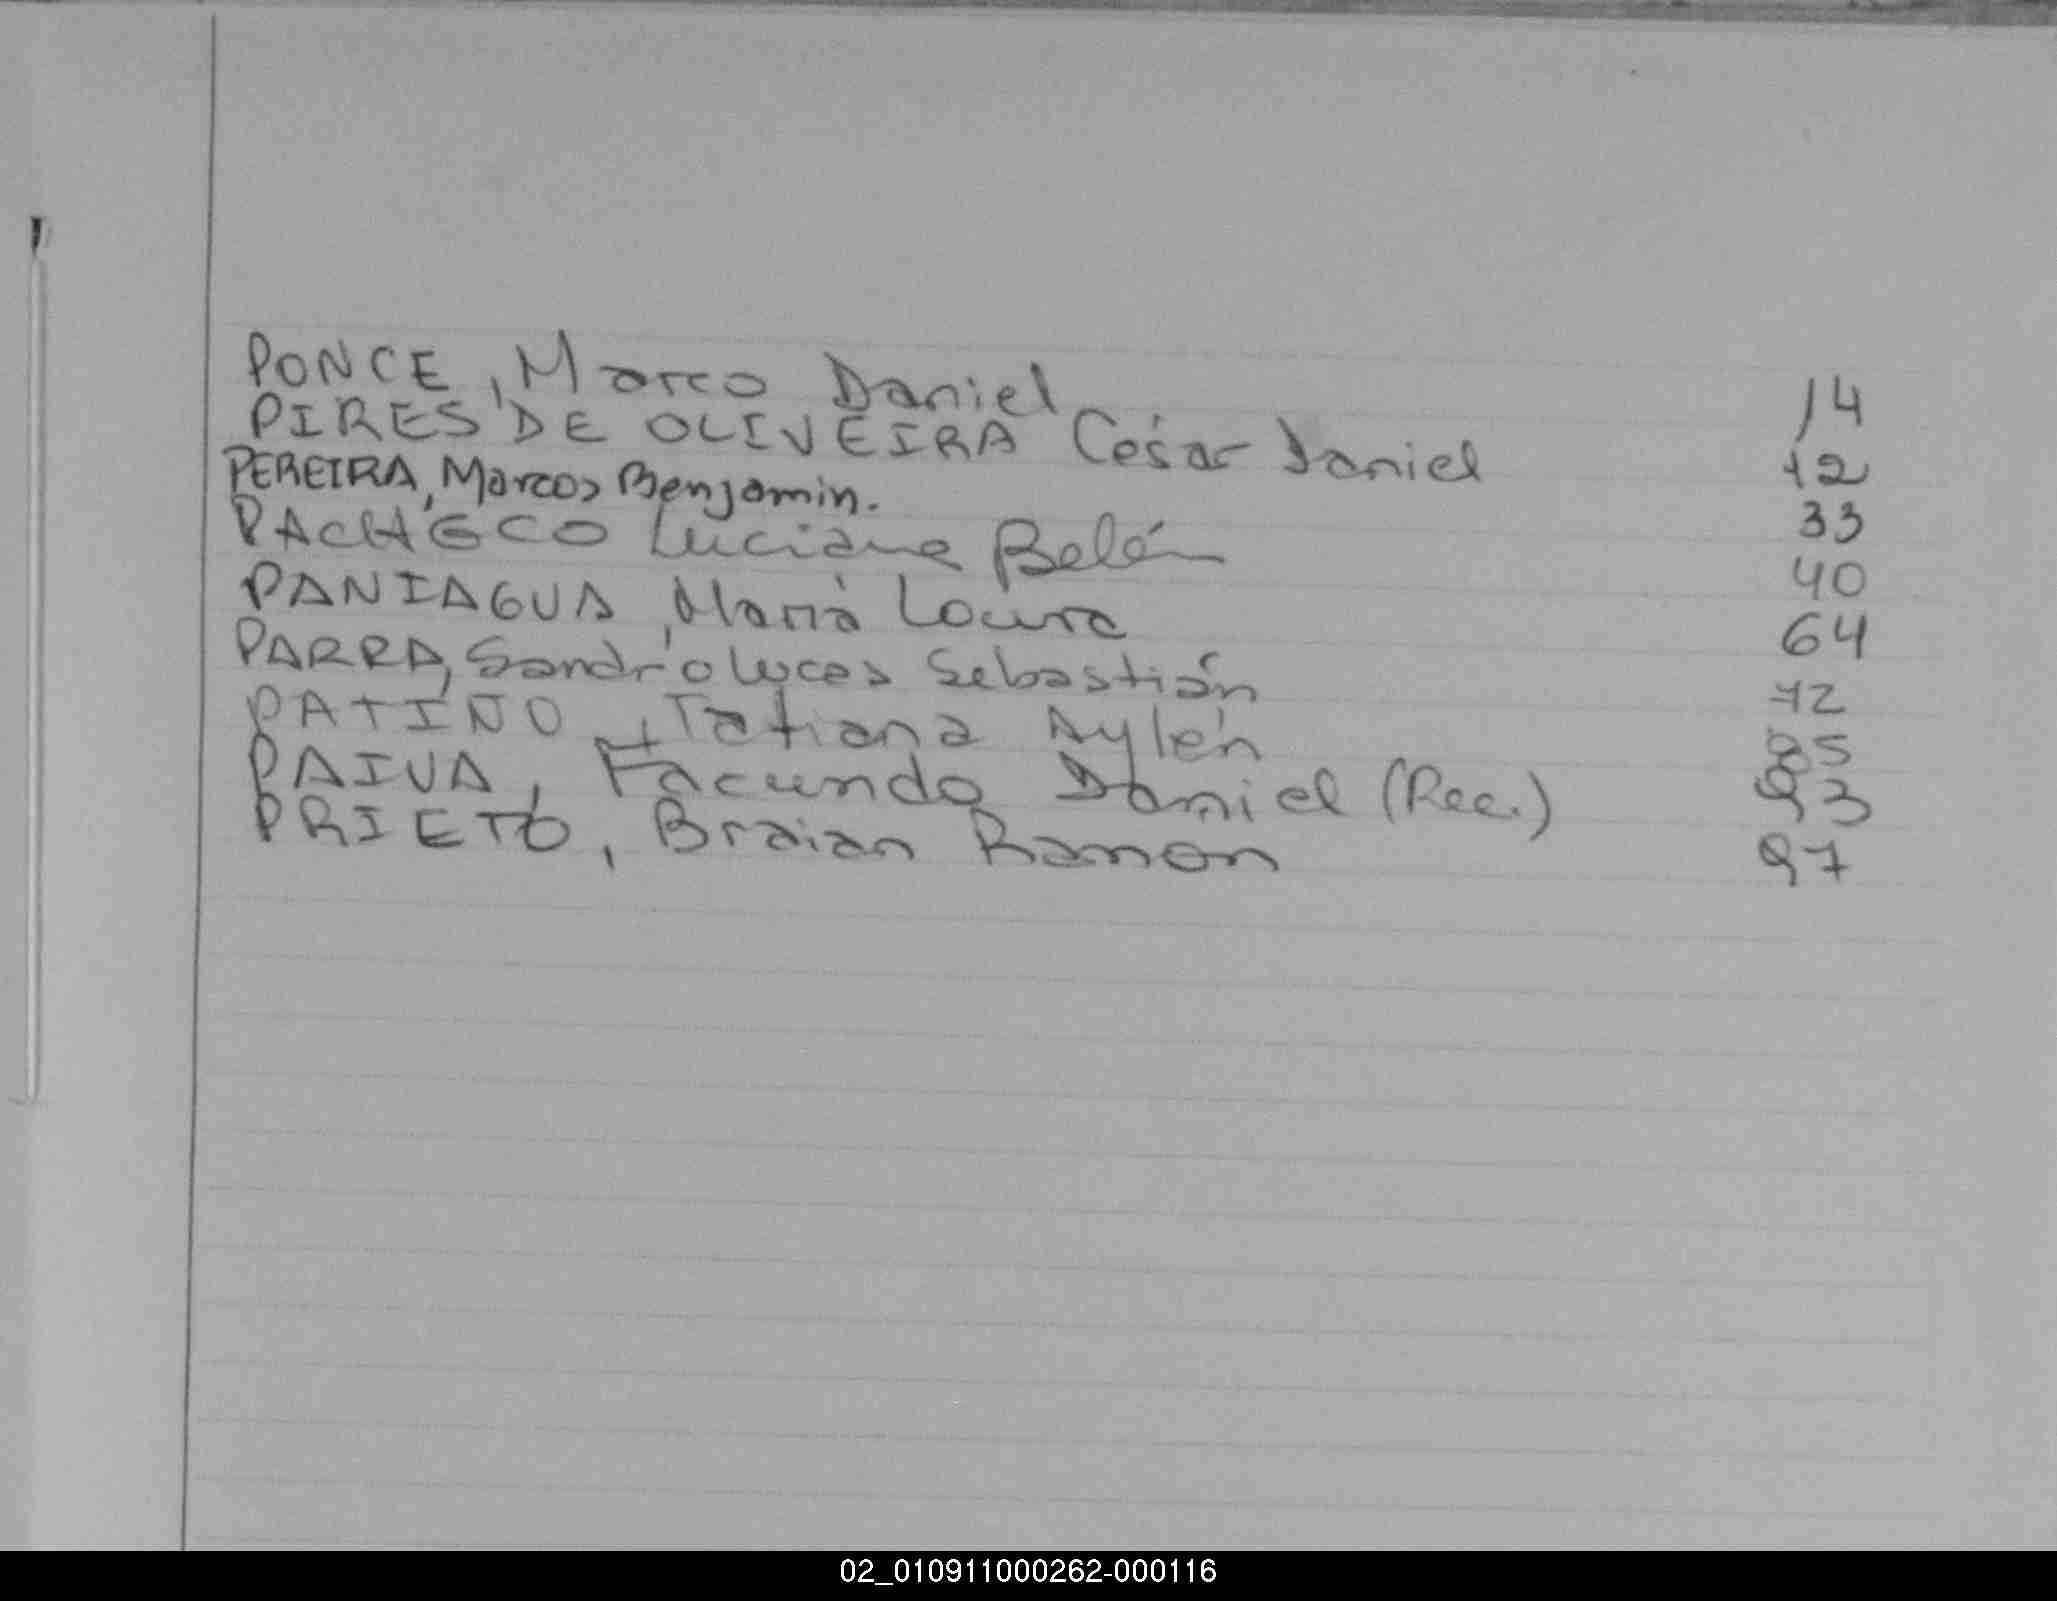 PONCE, Marco Daniel 14
PIRES DE OLIVEIRA César Daniel 12
PEREIRA, Marcos Benjamin. 33
PACHECO Luciana Belén 40
PANIAGUA, María Laura 64
PARRA, Sandro Lucas Sebastián 72
PATIÑO, Tatiana Aylén 85
PAIVA, Facundo Daniel (Rec.) 93
PRIETO, Braian Ramon 97
02_010911000262-000116